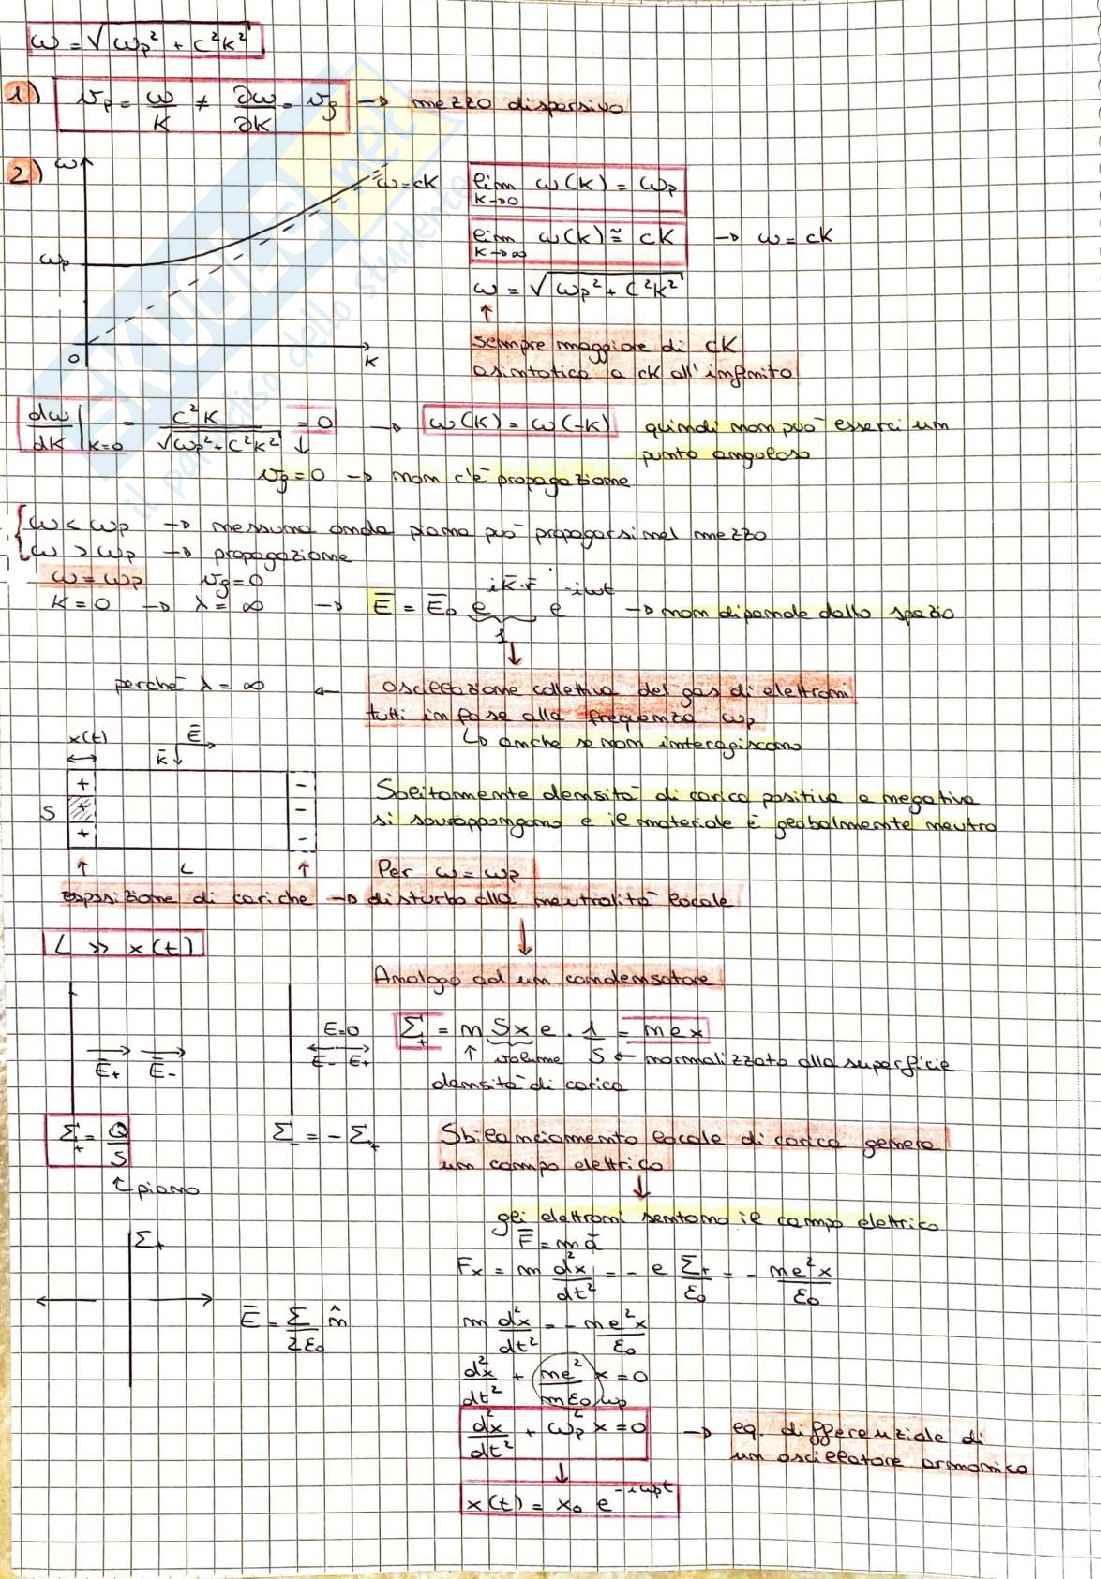 ω = √ωp² + c²k²
1) vp = ω/k ≠ ∂ω/∂k = vg → mezzo dispersivo
2) ω
ω=ck
lim k→0 ω(k) = ωp
ωp
lim k→∞ ω(k) ≅ ck → ω = ck
ω = √ωp² + c²k²
↑
0 k
sempre maggiore di ck
asintotica a ck all'infinito
dω/dk |k=0 = c²k/√ωp²+c²k² = 0 → ω(k) = ω(-k) quindi non può esserci un
punto angoloso
↓
vg=0 → non c'è propagazione
{ ω < ωp → nessuna onda piana può propagarsi nel mezzo
ω > ωp → propagazione
ω = ωp vg=0
k = 0 → λ = ∞ → E̅ = E̅₀ e^{ik̅·r̅} e^{-iωt} → non dipende dallo spazio
1
↓
perché λ = ∞ ← oscillazione collettiva del gas di elettroni
tutti in fase alla frequenza ωp
↳ anche se non interagiscono
x(t) E̅
↔ k̅↓
S + + + - - -
Solitamente densità di carica positiva e negativa
si sovrappongono e il materiale è globalmente neutro
↑ L ↑
Per ω = ωp
esposizione di cariche → disturbo alla neutralità locale
L >> x(t)
↓
Analogo ad un condensatore
E=0
Σ₊ = n Sx e · 1/S = nex
E̅₊ E̅₋
E̅₋ E̅₊
↑ volume ← normalizzato alla superficie
densità di carica
Σ₊ = Q/S
Σ₋ = -Σ₊
Sbilanciamento locale di carica genera
un campo elettrico
↑ piano
↓
gli elettroni sentono il campo elettrico
Σ₊
F̅ = ma̅
Fx = m d²x/dt² = - e Σ₊/ε₀ = - ne²x/ε₀
E̅ = Σ/2ε₀ n̂
m d²x/dt² = - ne²x/ε₀
d²x/dt² + (ne²/mε₀) x = 0
ωp²
d²x/dt² + ωp² x = 0 → eq. differenziale di
un oscillatore armonico
↓
x(t) = x₀ e^{-iωpt}
SKUOLA.net
il paradiso dello studente